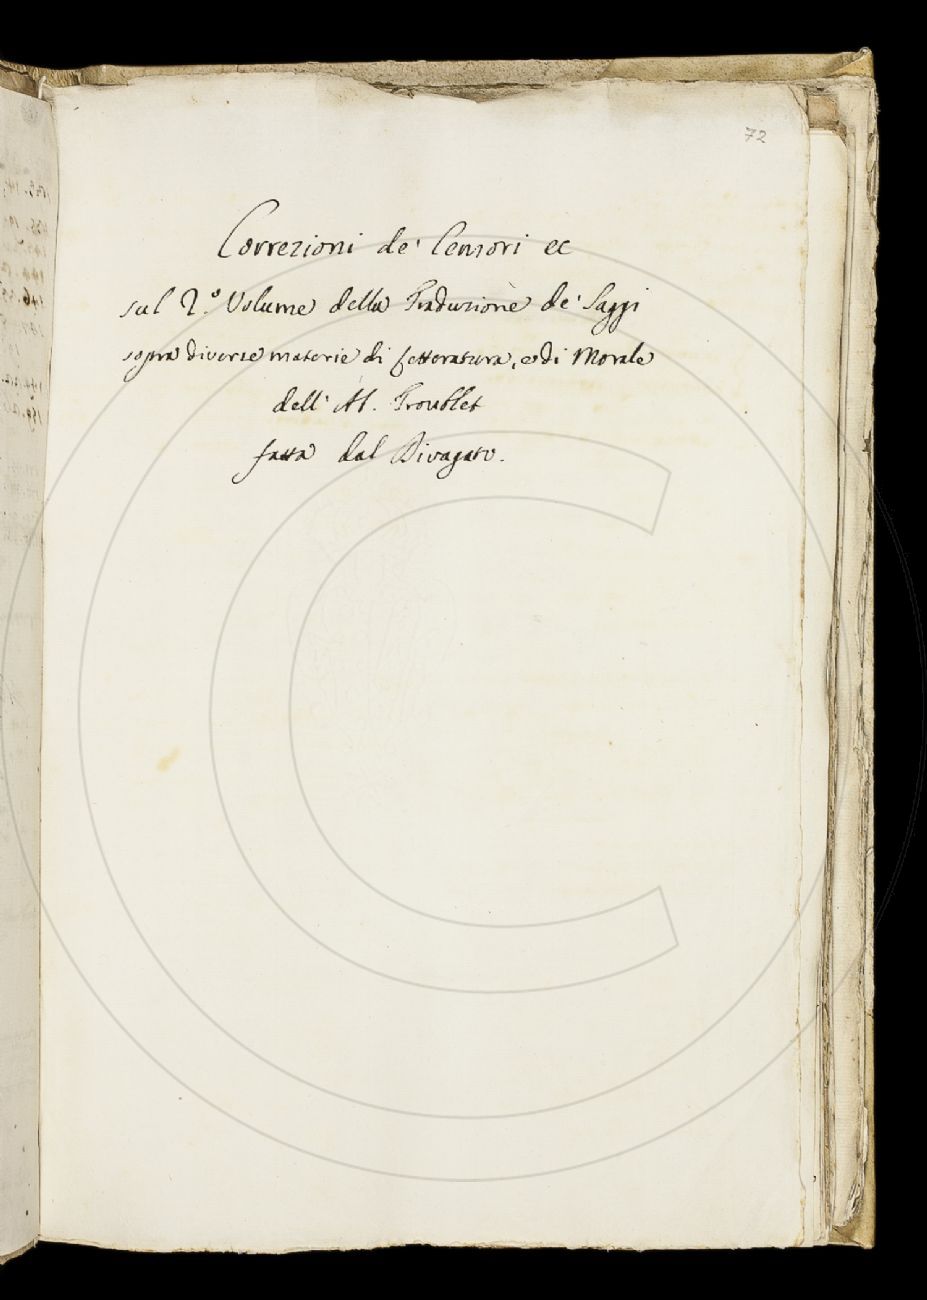 72
Correzioni de' Censori ec
sul 2.º Volume della Traduzione de' Saggi
sopra diverse materie di Letteratura, e di Morale
dell' Ab. Troublet
fatta dal Divagato.